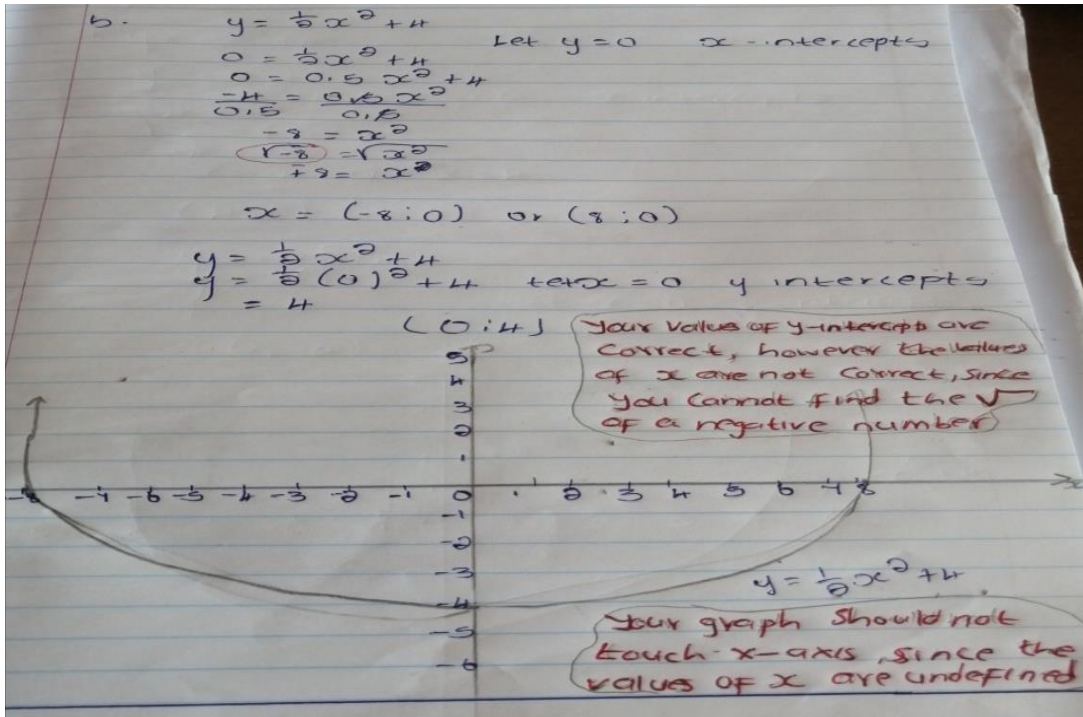 b. y = ½x² + 4
Let y = 0 x-intercepts
0 = ½x² + 4
0 = 0.5x² + 4
-4/0,5 = 0,5x²/0,5
-8 = x²
√-8 = √x²
∓8 = x
x = (-8;0) or (8;0)
y = ½x² + 4
y = ½(0)² + 4 let x = 0 y intercepts
= 4
(0;4)
Your values of y-intercepts are
correct, however the values
of x are not correct, since
you cannot find the √
of a negative number
5
4
3
2
1
-8 -7 -6 -5 -4 -3 -2 -1 0 1 2 3 4 5 6 7 8 x
-1
-2
-3
-4
-5
-6
y = ½x² + 4
Your graph should not
touch x-axis, since the
values of x are undefined